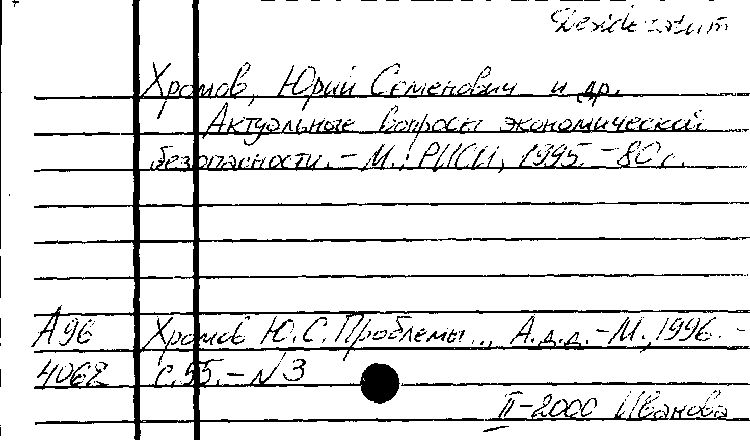 Desideratum
Хромов, Юрий Семенович и др.
Актуальные вопросы экономической
безопасности. - М.: РИСИ, 1995. - 80 с.
А96 Хромов Ю.С. Проблемы... А.д.д. - М., 1996. -
4062 с.55. - N3
II-2000 Иванова